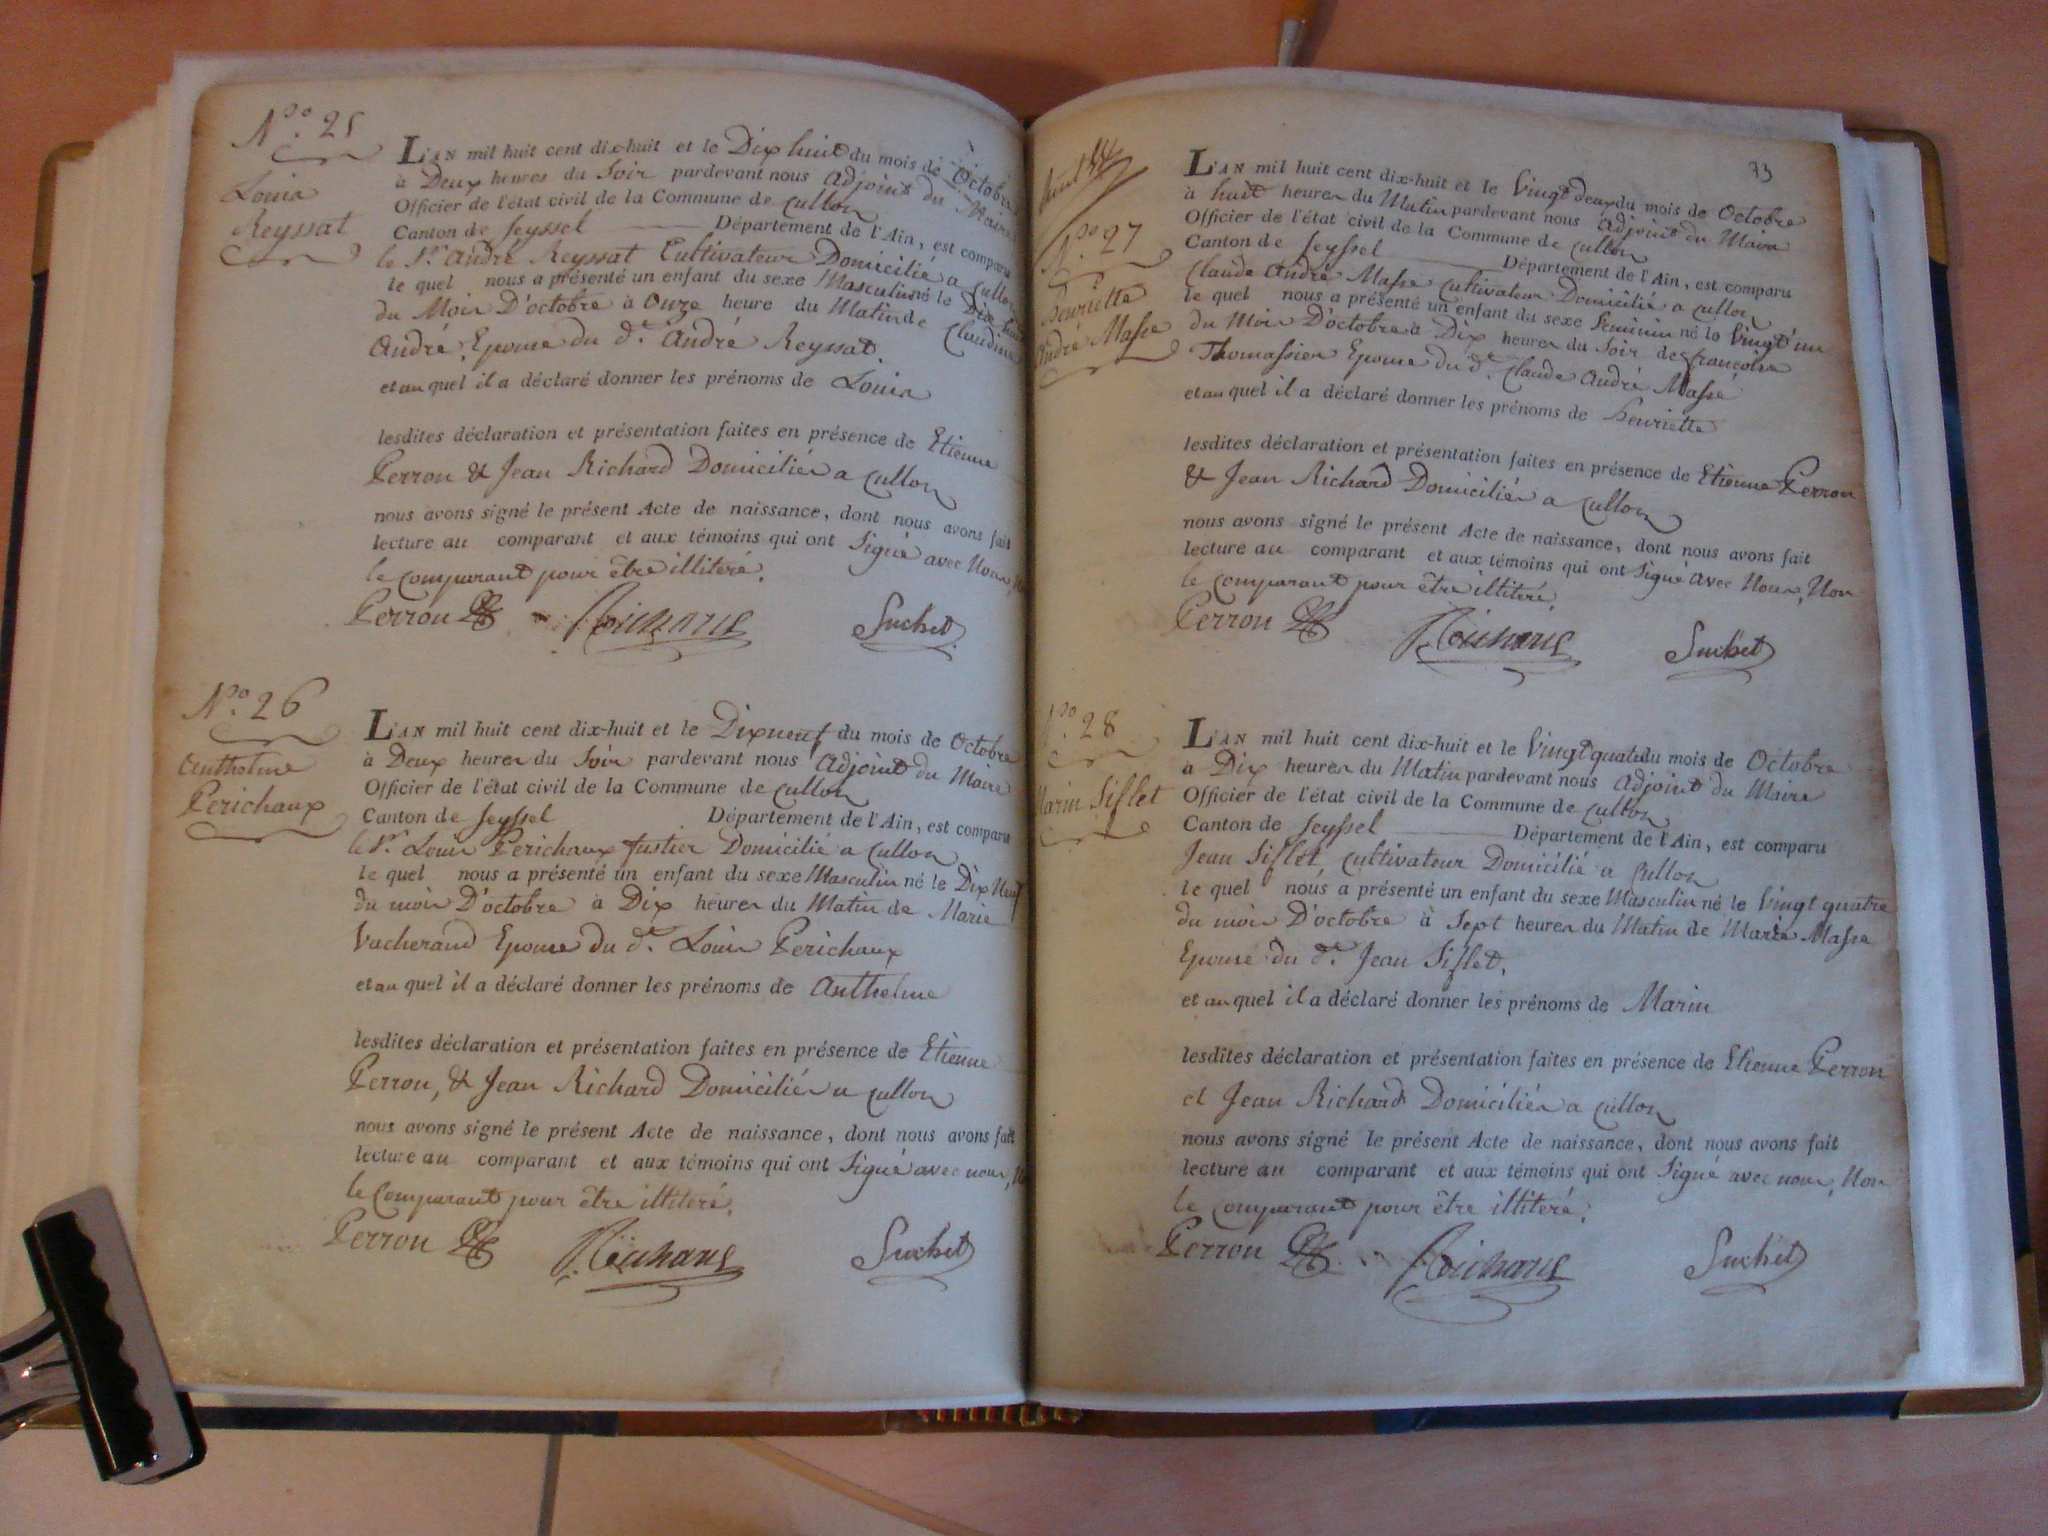 Nº. 25
Louis
Reyssat
L'AN mil huit cent dix-huit et le Dix huit du mois de Octobre
à Deux heures du Soir pardevant nous Adjoint du Maire
Officier de l'état civil de la Commune de Culloz
Canton de Seyssel Département de l'Ain, est comparu
le Sr. André Reyssat Cultivateur Domicilié a Culloz
le quel nous a présenté un enfant du sexe Masculin né le Dix huit
du Mois D'octobre à Onze heure du Matin de Claudine
André, Epouse du dt. André Reyssat
et au quel il a déclaré donner les prénoms de Louis
lesdites déclaration et présentation faites en présence de Etienne
Perron & Jean Richard Domiciliés a Culloz
nous avons signé le présent Acte de naissance, dont nous avons fait
lecture au comparant et aux témoins qui ont Signé avec Nous,
le Comparant pour être illitéré.
Perron Richard Suchet
Nº. 26
Anthelme
Perichaux
L'AN mil huit cent dix-huit et le Dixneuf du mois de Octobre
à Deux heures du Soir pardevant nous Adjoint du Maire
Officier de l'état civil de la Commune de Culloz
Canton de Seyssel Département de l'Ain, est comparu
le Sr. Louis Perichaux fustier Domicilié a Culloz
le quel nous a présenté un enfant du sexe Masculin né le Dix Neuf
du mois D'octobre à Dix heures du Matin de Marie
Vacherand Epouse du dt. Louis Perichaux
et au quel il a déclaré donner les prénoms de Anthelme
lesdites déclaration et présentation faites en présence de Etienne
Perron, & Jean Richard Domiciliés a Culloz
nous avons signé le présent Acte de naissance, dont nous avons fait
lecture au comparant et aux témoins qui ont Signé avec nous,
le Comparant pour être illitéré.
Perron Richard Suchet
73
Nº. 27
henriette
André Masse
L'AN mil huit cent dix-huit et le Vingt deux du mois de Octobre
à huit heures du Matin pardevant nous Adjoint du Maire
Officier de l'état civil de la Commune de Culloz
Canton de Seyssel Département de l'Ain, est comparu
Claude André Masse Cultivateur Domicilié a Culloz
le quel nous a présenté un enfant du sexe feminin né le Vingt un
du Mois D'octobre à Dix heures du Soir de françoise
Thomassien Epouse du dt. Claude André Masse
et au quel il a déclaré donner les prénoms de henriette
lesdites déclaration et présentation faites en présence de Etienne Perron
& Jean Richard Domiciliés a Culloz
nous avons signé le présent Acte de naissance, dont nous avons fait
lecture au comparant et aux témoins qui ont Signé avec Nous, Non
le Comparant pour être illitéré.
Perron Richard Suchet
Nº. 28
Marin Siflet
L'AN mil huit cent dix-huit et le Vingt quatre du mois de Octobre
à Dix heures du Matin pardevant nous Adjoint du Maire
Officier de l'état civil de la Commune de Culloz
Canton de Seyssel Département de l'Ain, est comparu
Jean Siflet, Cultivateur Domicilié a Culloz
le quel nous a présenté un enfant du sexe Masculin né le Vingt quatre
du mois D'octobre à Sept heures du Matin de Marie Masse
Epouse du dt. Jean Siflet,
et au quel il a déclaré donner les prénoms de Marin
lesdites déclaration et présentation faites en présence de Etienne Perron
et Jean Richard Domiciliés a Culloz
nous avons signé le présent Acte de naissance, dont nous avons fait
lecture au comparant et aux témoins qui ont Signé avec nous, Non
le Comparant pour être illitéré.
Perron Richard Suchet